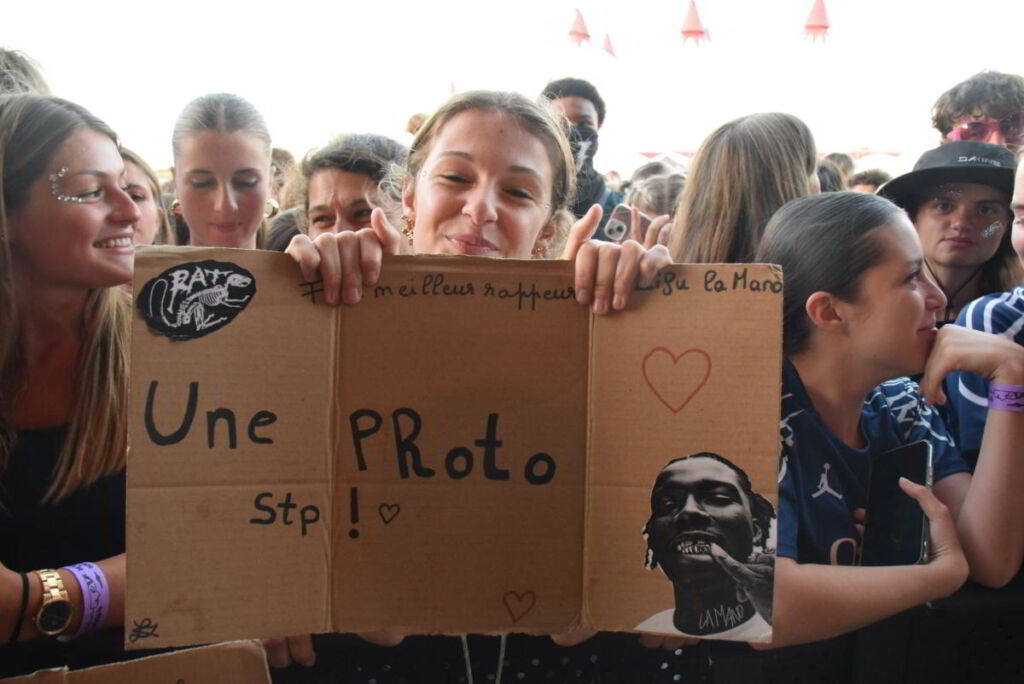 RAT
meilleur rappeur
la Mano
Une PRoto
Stp !
LA MANO
DAKINE